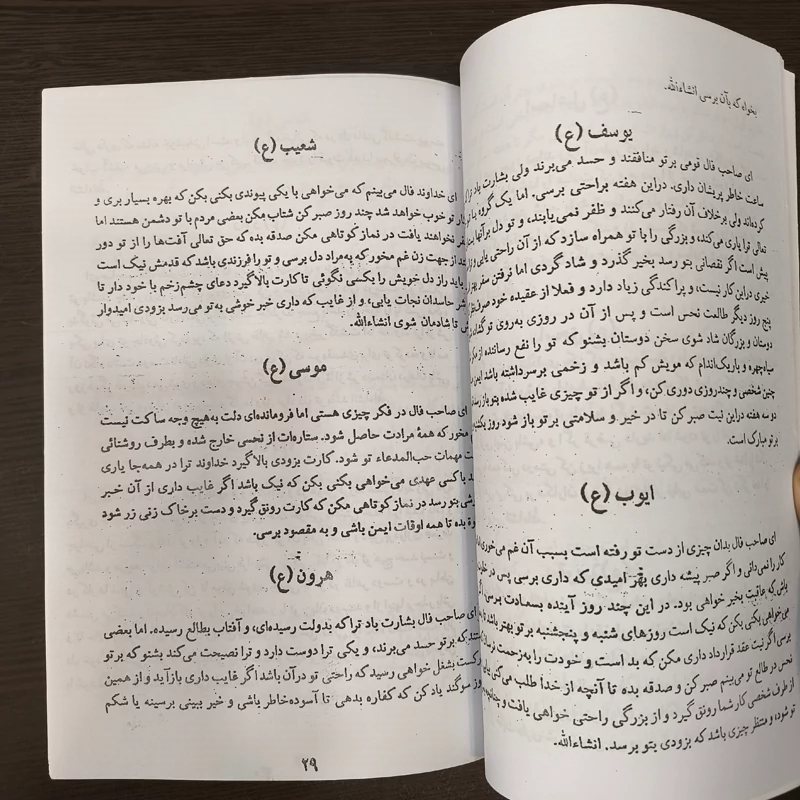 بخواه که بآن برسی انشاءالله.
یوسف (ع)
ای صاحب فال قومی برتو منافقند و حسد می‌برند ولی بشارت باد ترا که
ساعت خاطر پریشان داری. دراین هفته براحتی برسی. اما یک گروه بتو
کرده‌اند ولی برخلاف آن رفتار می‌کنند و ظفر نمی‌یابند، و تو دل برآنها
تعالی ترا یاری می‌کند، و بزرگی را با تو همراه سازد که از آن راحتی یابی و
پیش است اگر نقصانی بتو رسد بخیر گذرد و شاد گردی اما نرفتن سفر بهتر
خیری دراین کار نیست، و پراکندگی زیاد دارد و فعلا از عقیده خود صرف
پنج روز دیگر طالعت نحس است و پس از آن در روزی به‌روی تو گشاده
دوستان و بزرگان شاد شوی سخن دوستان بشنو که تو را نفع رساننده از
سیاه‌چهره و باریک‌اندام که مویش کم باشد و زخمی برسرداشته باشد این
چنین شخصی و چندروزی دوری کن، و اگر از تو چیزی غایب شده بتو باز رسد
دو سه هفته دراین نیت صبر کن تا در خیر و سلامتی برتو باز شود روز یکشنبه
برتو مبارک است.
ایوب (ع)
ای صاحب فال بدان چیزی از دست تو رفته است بسبب آن غم می‌خوری
کار را نمی‌دانی و اگر صبر پیشه داری بهر امیدی که داری برسی پس در
باش که عاقبت بخیر خواهی بود. در این چند روز آینده بسعادت برسی اگر
می‌خواهی بکنی بکن که نیک است روزهای شنبه و پنجشنبه برتو بهتر باشد
برسی اگر نیت عقد قرارداد داری مکن که بد است و خودت را به‌زحمت
نحس در طالع تو می‌بینم صبر کن و صدقه بده تا آنچه از خدا طلب می‌کنی
از طرف شخصی کار شما رونق گیرد و از بزرگی راحتی خواهی یافت و
تو شوده و منتظر چیزی باشد که بزودی بتو برسد. انشاءالله.
شعیب (ع)
ای خداوند فال می‌بینم که می‌خواهی با یکی پیوندی بکنی بکن که بهره بسیار بری و
تو خوب خواهد شد چند روز صبر کن شتاب مکن بعضی مردم با تو دشمن هستند اما
نخواهند یافت در نماز کوتاهی مکن صدقه بده که حق تعالی آفت‌ها را از تو دور
از جهت زن غم مخور که به‌مراد دل برسی و تو را فرزندی باشد که قدمش نیک است
باید راز دل خویش را بکسی نگوئی تا کارت بالاگیرد دعای چشم‌زخم با خود دار تا
حاسدان نجات یابی، و از غایب که داری خبر خوشی به‌تو می‌رسد بزودی امیدوار
تا شادمان شوی انشاءالله.
موسی (ع)
ای صاحب فال در فکر چیزی هستی اما فرومانده‌ای دلت به‌هیچ وجه ساکت نیست
مخور که همهٔ مرادت حاصل شود. ستاره‌ات از نحسی خارج شده و بطرف روشنائی
مهمات حب‌المدعاء تو شود. کارت بزودی بالاگیرد خداوند ترا در همه‌جا یاری
باکسی عهدی می‌خواهی بکنی بکن که نیک باشد اگر غایب داری از آن خبر
بتو رسد در نماز کوتاهی مکن که کارت رونق گیرد و دست برخاک زنی زر شود
بده تا همه اوقات ایمن باشی و به مقصود برسی.
هرون (ع)
ای صاحب فال بشارت باد تراکه بدولت رسیده‌ای، و آفتاب بطالع رسیده. اما بعضی
که برتو حسد می‌برند، و یکی ترا دوست دارد و ترا نصیحت می‌کند بشنو که برتو
بشغل خواهی رسید که راحتی تو درآن باشد اگر غایب داری بازآید و از همین
سوگند یاد کن که کفاره بدهی تا آسوده‌خاطر باشی و خیر ببینی برسینه یا شکم
۲۹